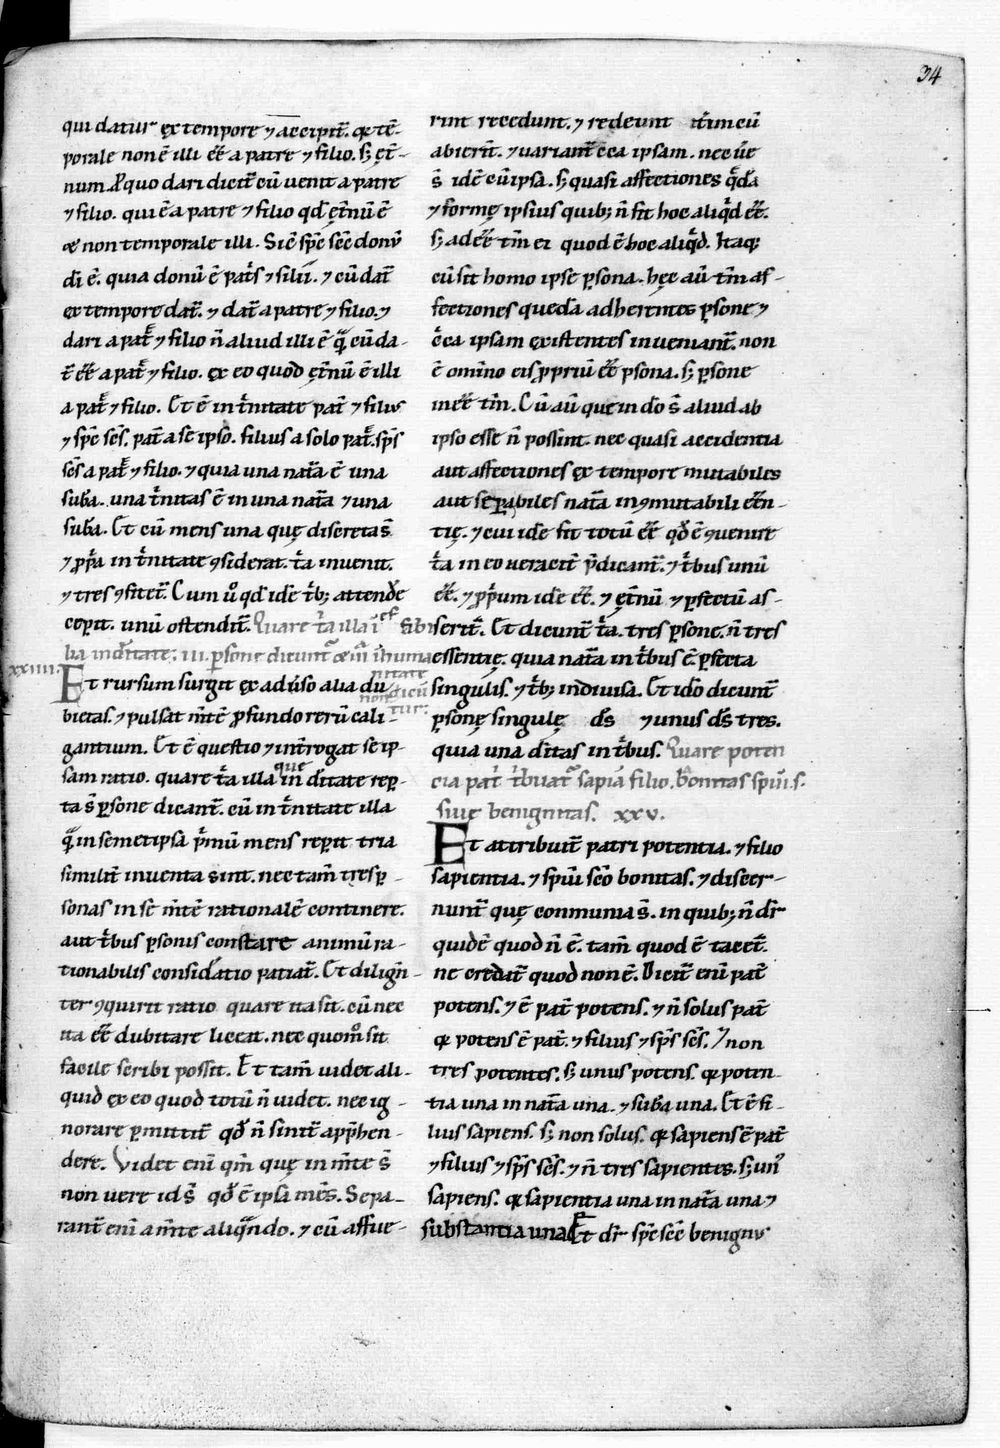 34
qui datur ex tempore ⁊ accipit᷑. q̨ tē-
porale non ē illi ēē a patre ⁊ filio. sꝫ ęt̄-
num. ꝓ quo dari dicit᷑ cū uenit a patre
⁊ filio. qui ē a patre ⁊ filio qd̄ ęt̄nū ē
⁊ non temporale illi. Sic ē sp̄c sēc donū
di ē. quia donū ē pat̄s ⁊ filii. ⁊ cū dat᷑
ex tempore dat᷑. ⁊ dat᷑ a patre ⁊ filio. ⁊
dari a pat̄ ⁊ filio n̄ aliud illi ē q̄ cū da-
t᷑ ēē a pat̄ ⁊ filio. ex eo quod ęt̄nū ē illi
a pat̄ ⁊ filio. Et ē in t̄nitate pat̄ ⁊ filius
⁊ sp̄c sc̄s. pat̄ a se ipso. filius a solo pat̄. sp̄s
sc̄s a pat̄ ⁊ filio. ⁊ quia una nat̄a ē una
sub̄a. una t̄nitas ē in una nat̄a ⁊ una
sub̄a. Et cū mens una quę discreta s̄
⁊ pp̄a in t̄nitate ꝯsiderat. t̄a inuenit.
⁊ tres ꝯfitet᷑. Cum u̾o qd̄ idē t̄bꝫ attende
ceꝑit. unū ostendit᷑. Quare t̄a illa ī ef sibi
lia in d̄itate. iii. ꝑsone dicunt᷑ ⁊ m̄ ī huma
nitate
non dicū
tur:
xxiiii. Et rursum surgit ex aduso alia du
bietas. ⁊ pulsat m̄tē ꝓfundo rerū cali-
gantium. Et ē questio ⁊ int̄rogat se ip-
sam ratio. quare t̄a illa que in d̄itate reꝑ-
ta s̄ ꝑsone dicant᷑. cū in t̄nitate illa
q̄ in semetipsa p̄mū mens reꝑit tria
similit̄ inuenta sint. nec tam̄ tres ꝑ-
sonas in se m̄te rationalē continere.
aut t̄bus ꝑsonis constare animū ra-
tionabilis considatio patiat᷑. Et dilign̄-
ter ꝯquirit ratio quare ita sit. cū nec
ita ēē dubitare liceat. nec quom̊ sit
facile scribi possit. Et tam̄ uidet ali-
quid ex eo quod totū n̄ uidet. nec ig-
norare ꝑmittit᷑ qd̄ n̄ sinit᷑ app̄hen-
dere. Videt eni qm̄ quę in m̄te s̄
non uere id s̄ qd̄ ē ipsa mēs. Sepa-
rant᷑ eni a m̄te aliq̄ndo. ⁊ cū affue-
rint recedunt. ⁊ redeunt it̄im cū
abierīt. ⁊ uariant᷑ c̄ca ipsam. nec ūe
s̄ idē cū ipsa. sꝫ quasi affectiones q̄dā
⁊ formę ipsius quibꝫ n̄ fit hoc aliq̄d ēē.
sꝫ ad ēē tm̄ ei quod ē hoc aliq̄d. Itaqꝫ
cū sit homo ipse ꝑsona. hęc aū tm̄ af-
fectiones quedā adherentes ꝑsone ⁊
c̄ca ipsam existentes inueniant᷑. non
ē omīno eis ꝓpriū ēē ꝑsona. sꝫ ꝑsone
inēē tm̄. Cū aū que in d̄o s̄ aliud ab
ipso esse n̄ possint. nec quasi accidentia
aut affectiones ex tempore mutabiles
aut seꝑabiles nat̄a inꝯmutabili ēēn-
tię. ⁊ cui idē sit totū ēē qd̄ ē ꝯuenire
t̄a in eo ueracit̄ p̄dicant᷑. ⁊ t̄bus unū
ēē. ⁊ pp̄um idē ēē. ⁊ ęt̄nū ⁊ ꝑfectū as-
serit᷑. Et dicunt᷑ t̄a. tres ꝑsone. n̄ tres
essentię. quia nat̄a in t̄bus ē. ꝑfecta
singulis. ⁊ t̄bꝫ indiuisa. Et ido dicunt᷑
ꝑsonę singulę d̄s ⁊ unus d̄s tres.
quia una d̄itas in t̄bus. Quare poten
cia pat̄ t̄buat᷑ sapiā filio. bonitas spiui s.
siue benignitas. xxv.
Et attribuit᷑ patri potentia. ⁊ filio
sapientia. ⁊ spiui sc̄o bonitas. ⁊ discer-
nunt᷑ quę conmunia s̄. in quibꝫ n̄ dr̄
quidē quod n̄ ē. tam̄ quod ē tacet᷑.
ne credat᷑ quod non ē. Dicit᷑ eni pat̄
potens. ⁊ ē pat̄ potens. ⁊ n̄ solus pat̄
q̨ potens ē pat̄. ⁊ filius ⁊ sp̄s sc̄s. ⁊ non
tres potentes. sꝫ unus potens. q̨ poten-
tia una in nat̄a una. ⁊ sub̄a una. Et ē fi-
lius sapiens. sꝫ non solus. q̨ sapiens ē pat̄
⁊ filius ⁊ sp̄s sc̄s. ⁊ n̄ tres sapientes. sꝫ un᷒
sapiens. q̨ sapientia una in nat̄a una ⁊
substantia una. Et dr̄ sp̄c sc̄c benignus